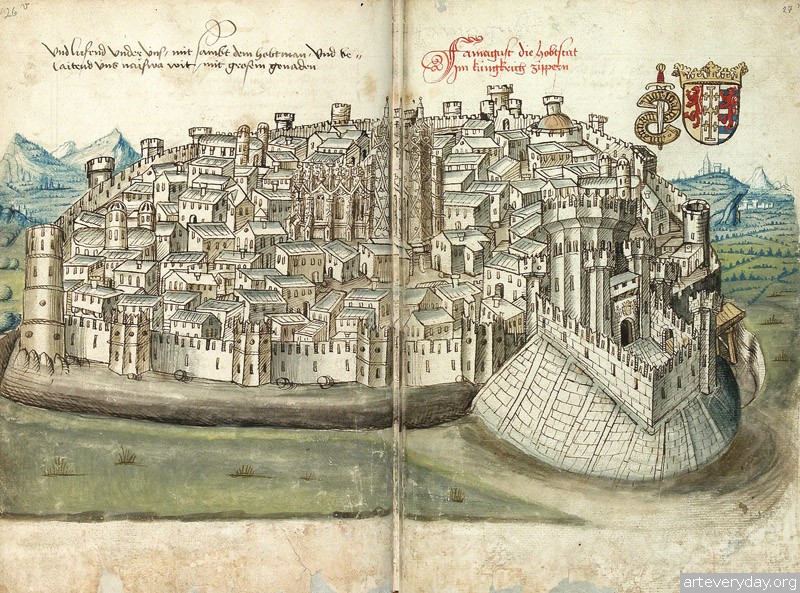 26 v
27
Vnd lusend Vnder Vns mit sambt dem hobtman Vnd be=
laitend Vns mit grosem genaden
Famagust die hobtstat
Im kungkreich zippern
arteveryday.org